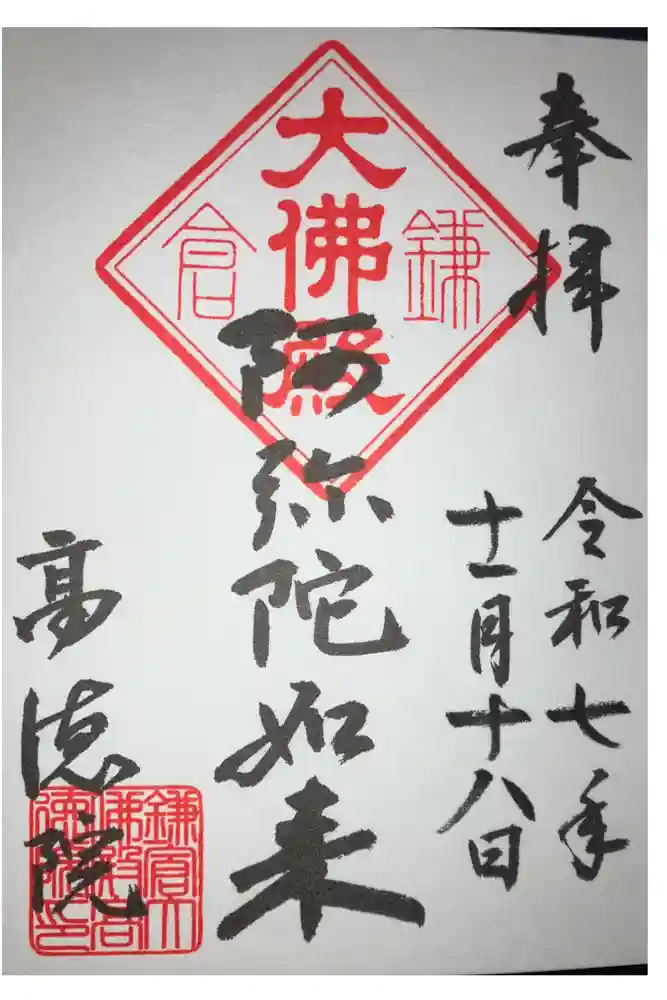 奉拝
令和七年
十一月十八日
大佛殿
鎌倉
阿弥陀如来
高徳院
鎌倉大
佛殿高
徳院印